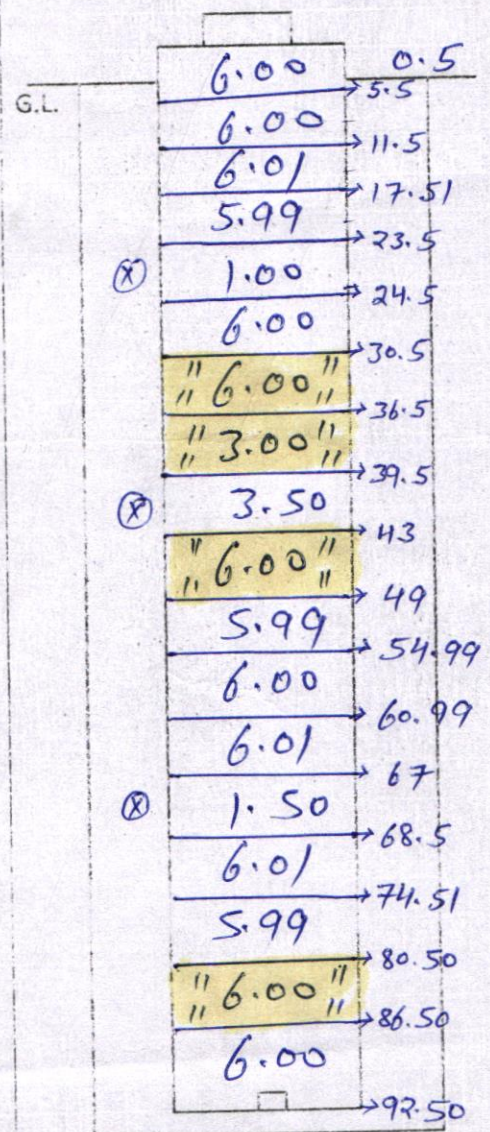 6.00 0.5
G.L. 5.5
6.00
11.5
6.01
17.51
5.99
23.5
(X) 1.00
24.5
6.00
30.5
" 6.00 "
36.5
" 3.00 "
39.5
(X) 3.50
43
" 6.00 "
49
5.99
54.99
6.00
60.99
6.01
67
(X) 1.50
68.5
6.01
74.51
5.99
80.50
" 6.00 "
86.50
6.00
92.50